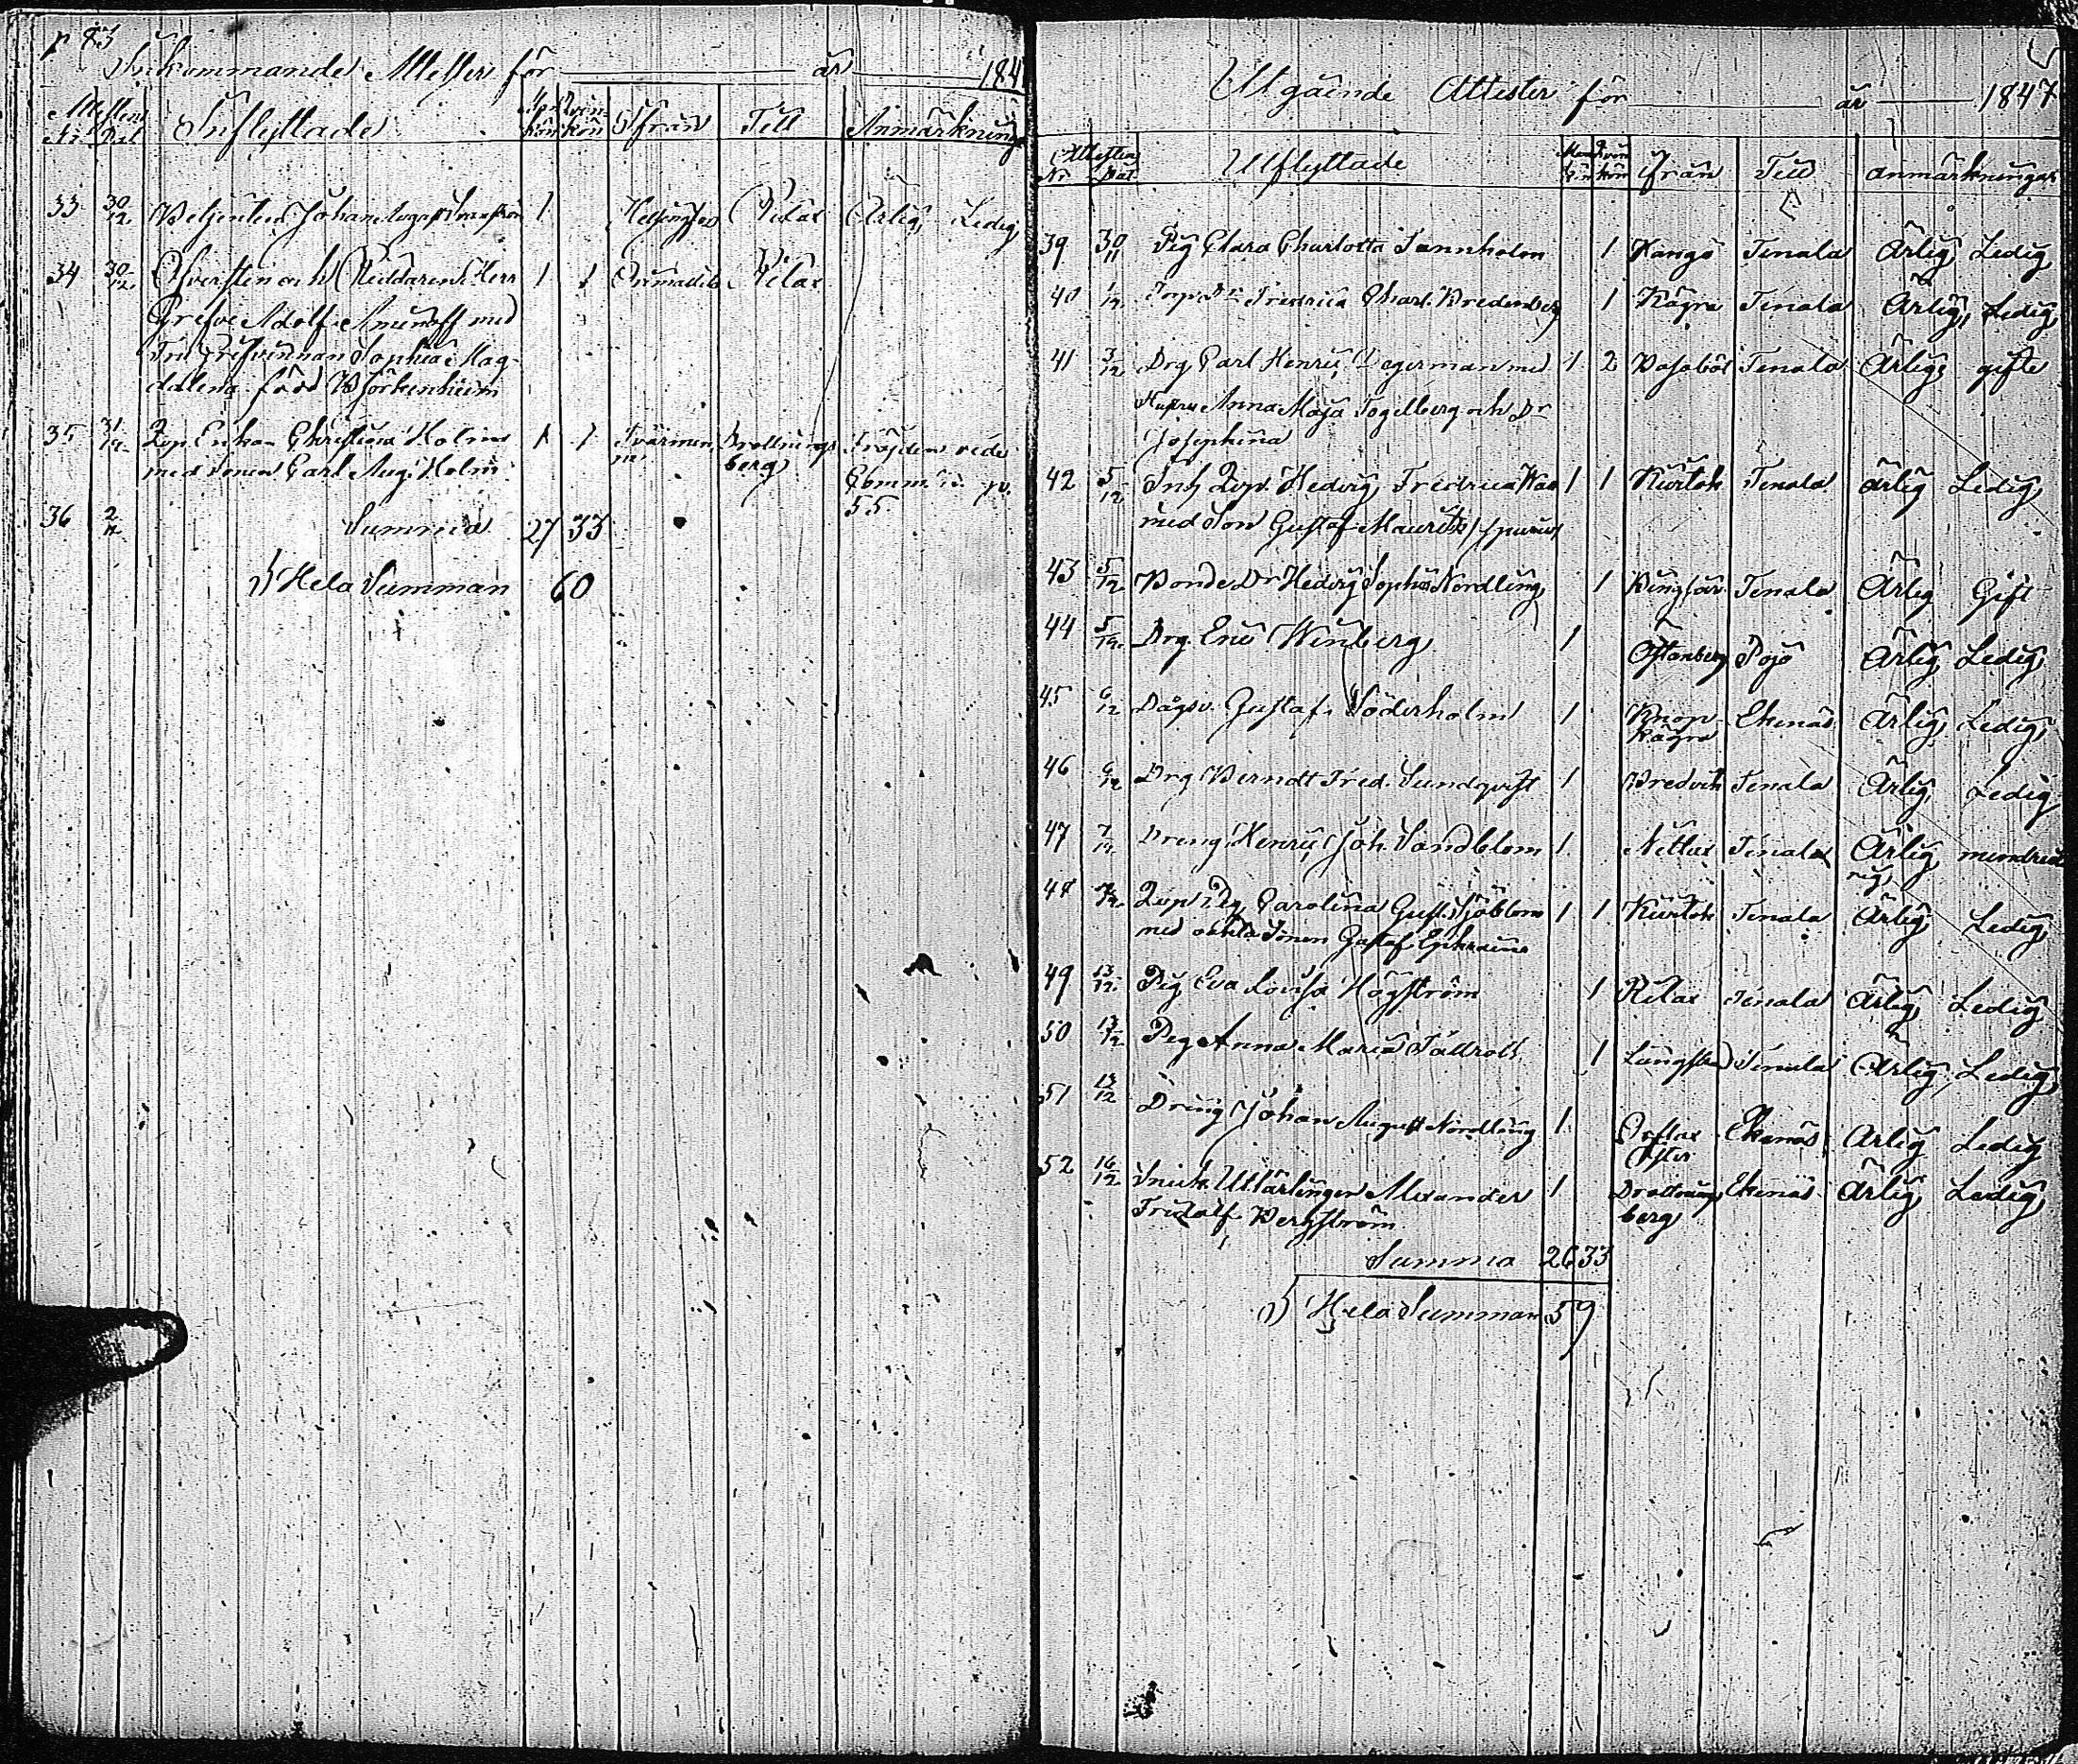 p 83
Inkommande Attester för år 184
Attestens Inflyttade Man kön Qvin kön Ifrån Till Anmärkning
Nr Dat
33 30/12 Betjenten Johan August 1 Helsingfors Rilax Ärlig, Ledig
34 30/12 Öfversten och Riddaren Herr 1 1 Rilax
Grefve Adolf Aminoff med
Fru Grefvinnan Sophia Mag-
dalena född Björkenheim
35 31/12 Enkan Christina Holm 1 1 Tvärmin Drottnings
med Sonen Carl Aug. Holm ne berg
55
36 2/12 Summa 27 33
Hela Summan 60
Utgående Attester för år 1847
Attestens Utflyttade Man kön Qvin kön ifrån Till anmärkningar
Nr Dat
39 30/11 Pig Clara Charlotta Tennholm 1 Hangö Tenala Ärlig, Ledig
40 1/12 Torp Dr Fredrica Charl. Bredenberg 1 Kågra Tenala Ärlig, Ledig
41 3/12 Drg Carl Henric Degerman med 1 2 Basaböl Tenala Ärlig, gifte
Hustru Anna Maja Fogelberg och Dr
Josephina
42 5/12 Inh Hedvig Fredrica 1 1 Tenala ärlig Ledig
med Son Gustaf Maurits spurius
43 5/12 Bonde Dr Hedvig Sophia Nordling 1 Tenala Ärlig Gift
44 5/12 Drg Eric Winberg 1 Öftanberg Pojo Ärlig, Ledig
45 6/12 Dagsv. Gustaf Söderholm 1 Knop Ekenäs Ärlig, Ledig
kägra
46 6/12 Drg Berndt Fred. Sundqvist 1 Bredvik Tenala Ärlig, Ledig
47 7/12 Dreng Henric Joh. Sandblom 1 Tenala Ärlig,
48 7/12 Pig Carolina Gust. Sjöblom 1 1 Tenala Ärlig, Ledig
med oäkta Sonen Gustaf Ephraim
49 13/12 Pig Eva Lovisa Högström 1 Rilax Tenala Ärlig, Ledig
50 13/12 Pig Anna Maria Tallroth 1 Långstrand Tenala Ärlig, Ledig
51 13/12 Dräng Johan August Nordling 1 Ekenäs Ärlig Ledig
52 16/12 Snick. Utlärlingen Alexander 1 Drottnings Ekenäs Ärlig, Ledig
Fridolf Bergström berg
Summa 26 33
Hela Summan 59